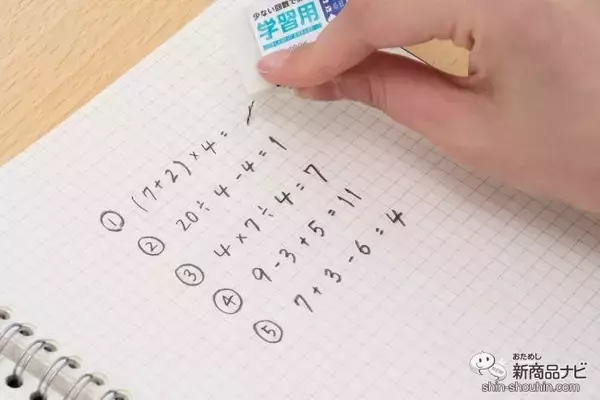 少ない回数で
学習用
① (7+2)×4=
② 20÷4-4=1
③ 4×7÷4=7
④ 9-3+5=11
⑤ 7+3-6=4
おためし
新商品ナビ
shin-shouhin.com